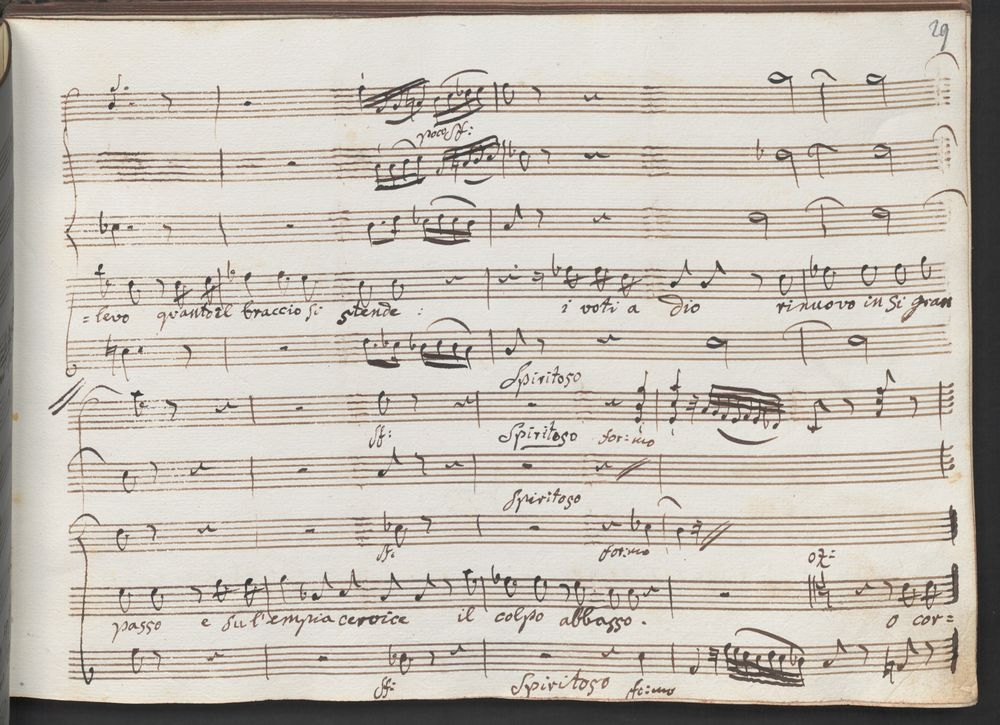 29
poco sf:
=levo quanto il braccio si stende : i voti a Dio rinuovo in si gran
Spiritoso
sf: Spiritoso for:mo
Spiritoso
sf: for:mo
oz:
passo e su l'empia cervice il colpo abbasso . o cor=
sf: Spiritoso fo:mo